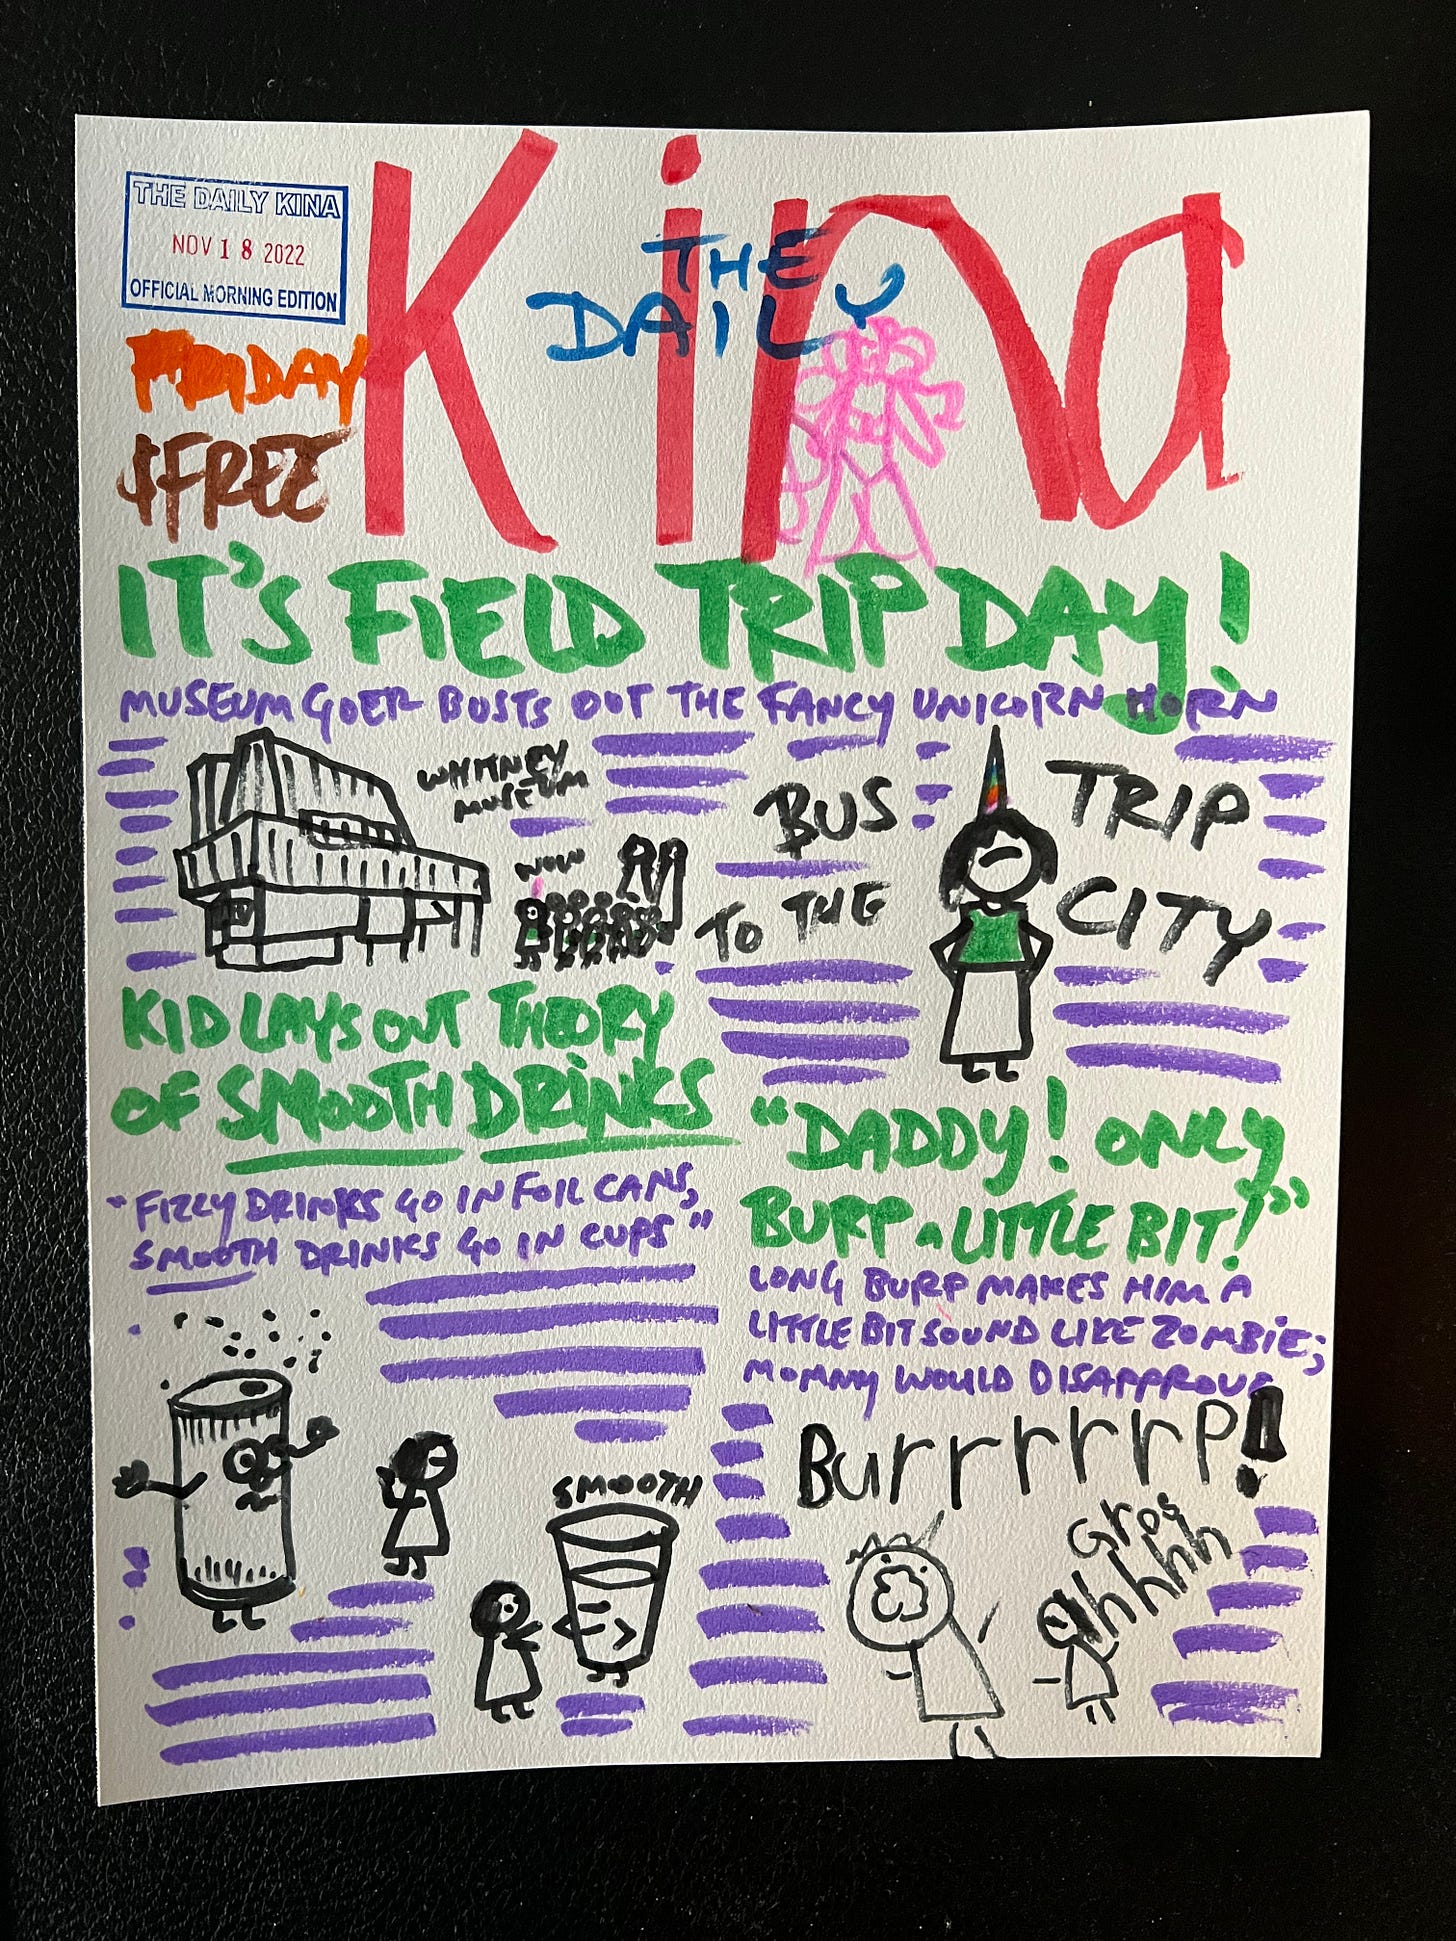 THE DAILY KINA
NOV 18 2022
OFFICIAL MORNING EDITION
Kina
THE
DAILY
FRIDAY
$FREE
IT'S FIELD TRIP DAY!
MUSEUM GOER BUSTS OUT THE FANCY UNICORN HORN
WHITNEY
MUSEUM
WOW
BUS
TO THE
TRIP
CITY
KID LAYS OUT THEORY
OF SMOOTH DRINKS
"FIZZY DRINKS GO IN FOIL CANS,
SMOOTH DRINKS GO IN CUPS"
SMOOTH
"DADDY! ONLY
BURP A LITTLE BIT!"
LONG BURP MAKES HIM A
LITTLE BIT SOUND LIKE ZOMBIE;
MOMMY WOULD DISAPPROVE
Burrrrrrp!
Gros
hhhhh